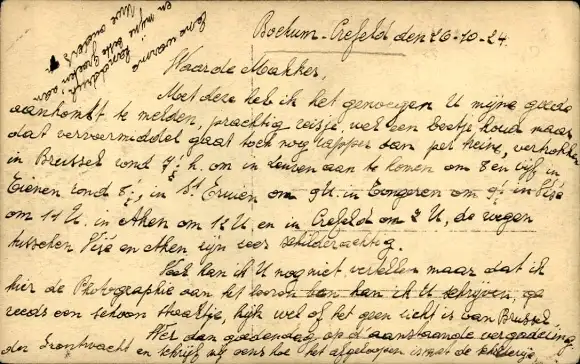 Bochum-Crefeld, den 26-10-24.
Waarde Makker,
Met deze heb ik het genoegen U mijne goede
aankomst te melden, prachtig reisje, wel een beetje koud maar
dat vervoermiddel gaat toch nog rapper dan per treine, vertrokken
in Brussel rond 7½ h. om in Leuven aan te komen om 8 en vijf in
Tienen rond 8½, in St Truien om 9 U. in Tongeren om 9½ in Visé
om 11 U. in Aken om 12 U. en in Crefeld om 3 U, de wegen
tusschen Visé en Aken zijn zeer schilderachtig.
Veel kan ik U nog niet vertellen maar dat ik
hier de Photographie van het kan ik U schrijven,
reeds een schoon kaartje, kijk wel of het geen zicht is van Brussel
Wel dan goedendag op d'aanstaande vergadering
der Frontwacht en schrijf mij eens hoe het afgeloopen is met de
Eene warme
handdruk, aan
en mijne beste groeten
Uwe ouders